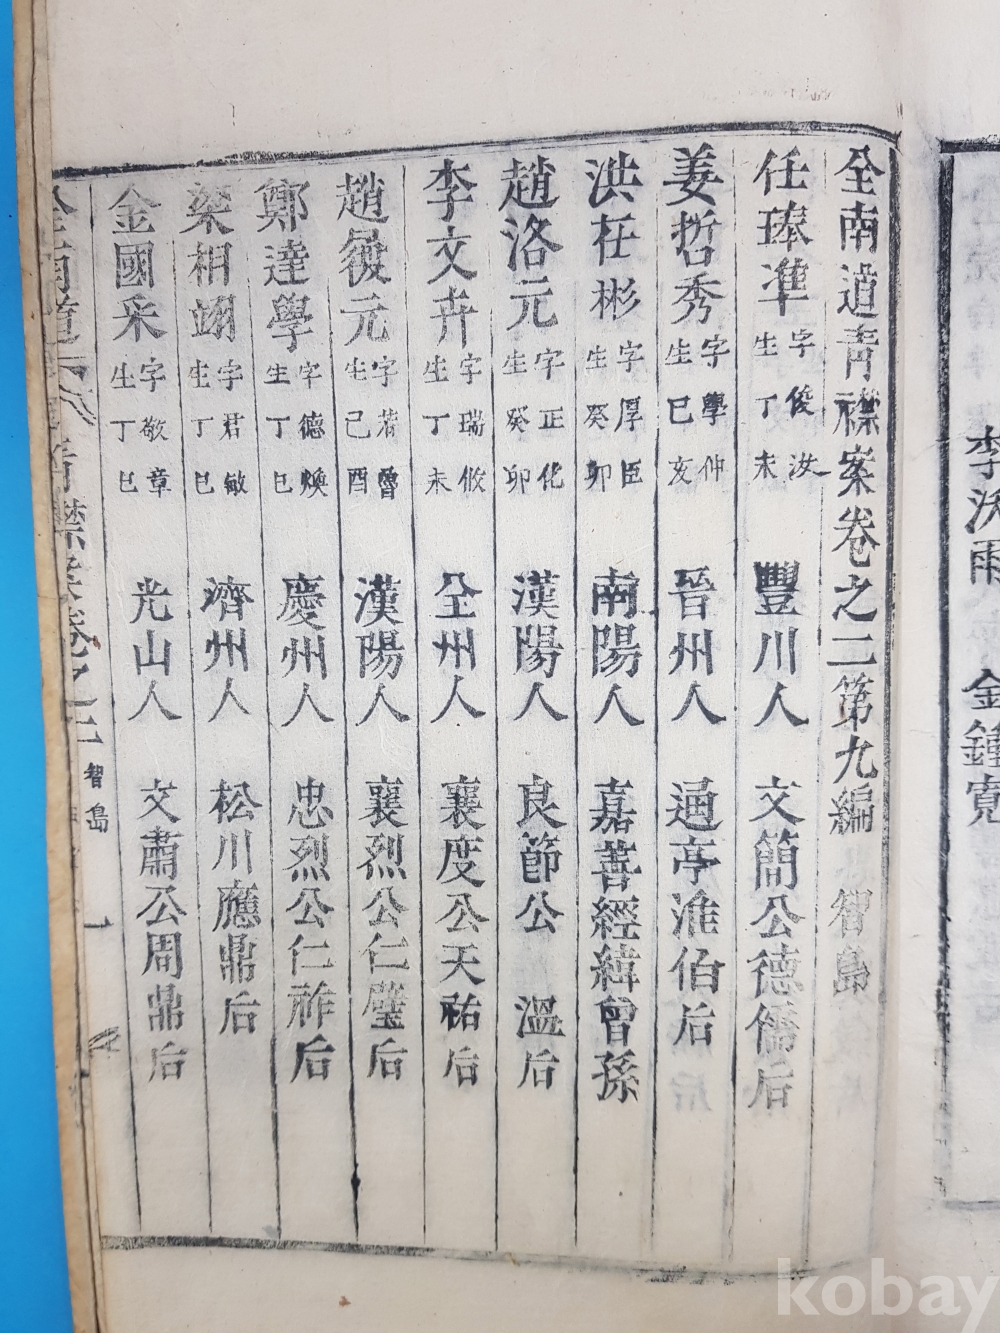 全南道青襟案卷之二第九編 智島
任琫準 字俊汝 生丁未 豐川人 文簡公德儒后
姜哲秀 字學仲 生巳亥 晉州人 通亭淮伯后
洪在彬 字厚臣 生癸卯 南陽人 嘉善經緯曾孫
趙洛元 字正化 生癸卯 漢陽人 良節公 溫后
李文卉 字瑞攸 生丁未 全州人 襄度公天祐后
趙薇元 字若魯 生己酉 漢陽人 襄烈公仁璧后
鄭達學 字德煥 生丁巳 慶州人 忠烈公仁祚后
梁相翊 字君敏 生丁巳 濟州人 松川應鼎后
金國采 字敬章 生丁巳 光山人 文肅公周鼎后
全南道 青襟案卷之二 智島 一
李沃雨 金鍾寬
kobay